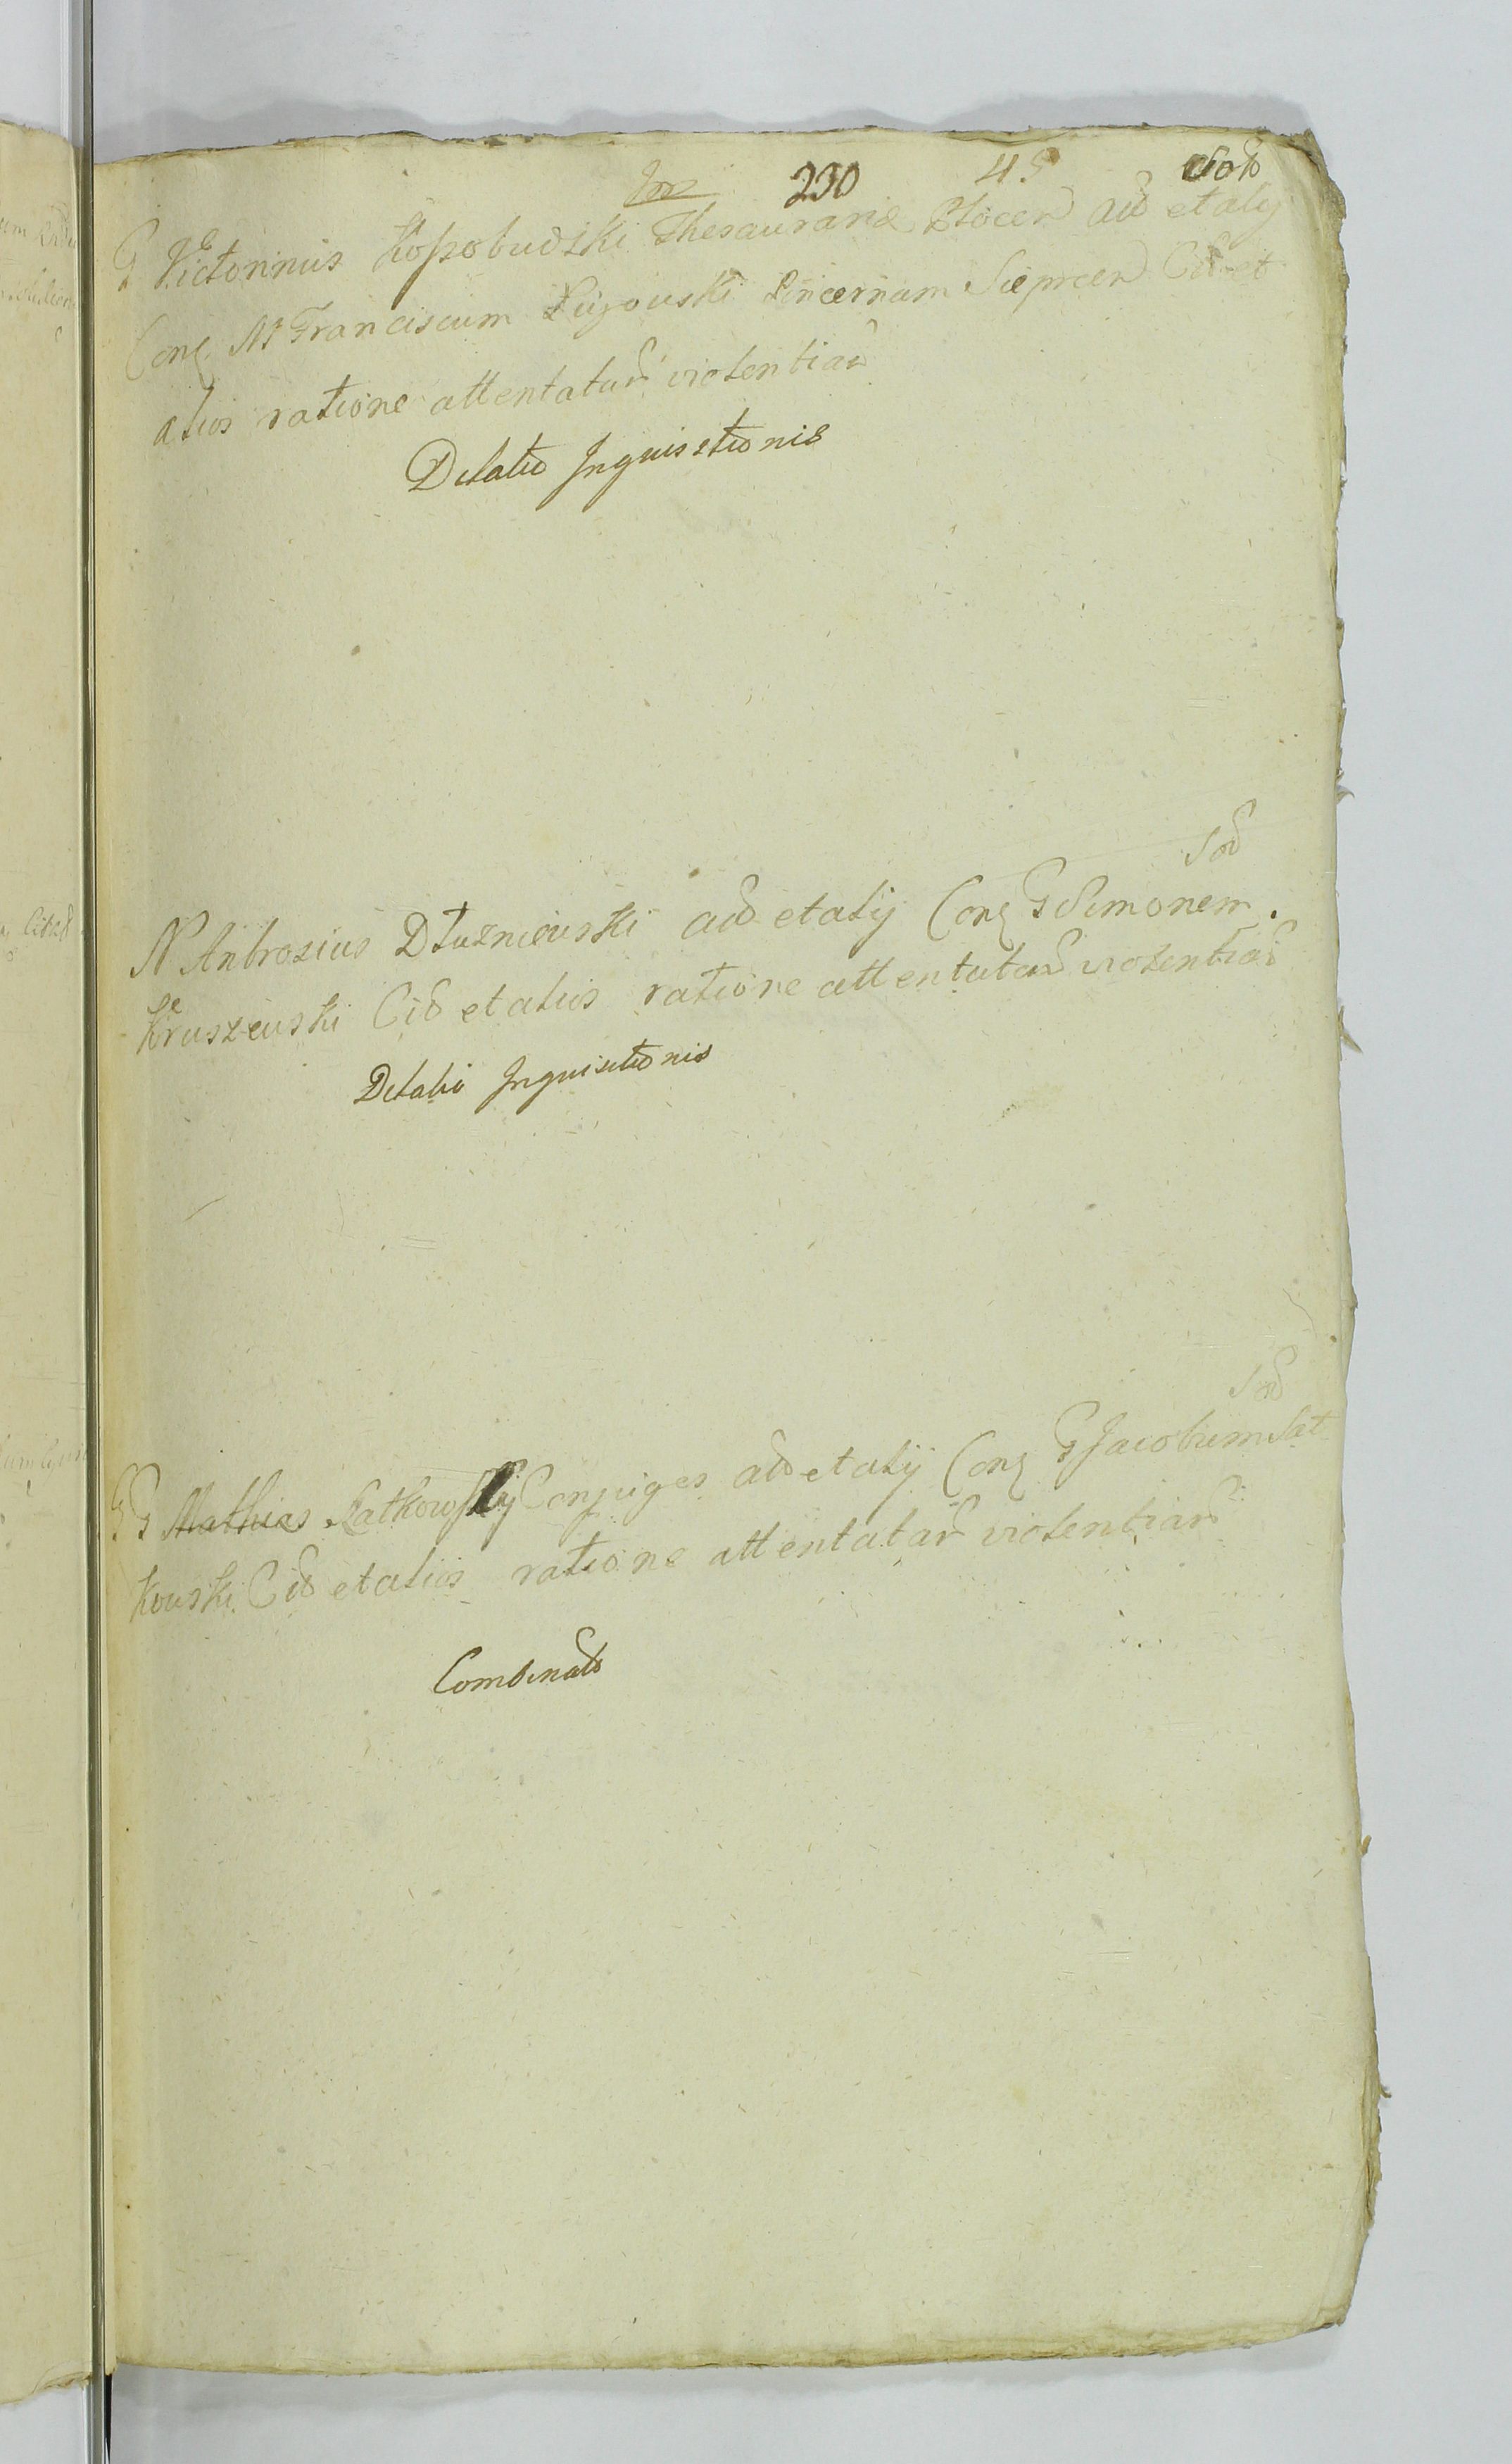 230 45
G Victorinus Kossobudzki Thesaurarius Płocen Act et alij
Conq M Franciscum Zuzowski Pincernam Sieprcen Cit et
alios ratione attentatar violentiar
Delatio Inquisitionis
N Anbrosius Dłuzniewski act et alij Conq G Simonem
Kruszewski Cit et alios ratione attentatar violentiar
Delatio Inquisitionis
GG Mathias Latkowskij Conjuges act et alij Conq G Jacobum Lat
kowski Cit et alios ratione attentatar violentiar
Combinatr